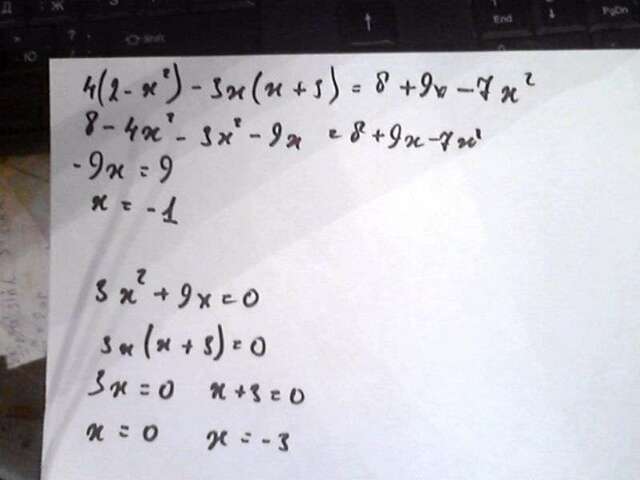 Д Ж End PgDn
Ю ? Shift
4(2 - x²) - 3x(x + 3) = 8 + 9x - 7x²
8 - 4x² - 3x² - 9x = 8 + 9x - 7x²
- 9x = 9
x = - 1
3x² + 9x = 0
3x(x + 3) = 0
3x = 0 x + 3 = 0
x = 0 x = - 3